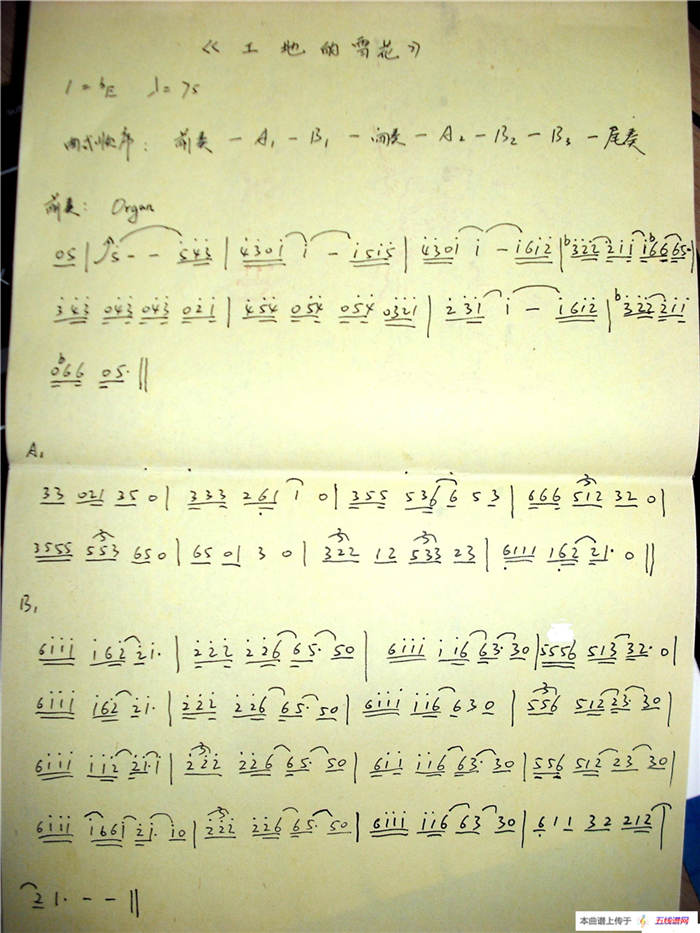 《工地的雪花》
1=bE ♩=75
曲式顺序: 前奏-A1-B1-间奏-A2-B2-B3-尾奏
前奏: Organ
05 | 5 - - 543 | 4301 1 - 1515 | 4301 1 - 1612 | b322 211 1b66 65· |
343 043 043 021 | 454 054 054 0321 | 231 1 - 1612 | b322211
0b66 05· ||
A1
33 021 35 0 | 333 261 1 0 | 355 536 6 53 | 666 512 32 0 |
3555 553 650 | 65 01 3 0 | 322 12 533 23 | 6111 162 21· 0 ||
B1
6111 162 21· | 222 226 65· 50 | 6111 116 63· 30 | 5556 513 32· 0 |
6111 162 21· | 222 226 65· 50 | 6111 116 630 | 556 512 23· 30 |
6111 112 21·1 | 222 226 65· 50 | 611 116 63· 30 | 556 512 23 30 |
6111 1661 21· 10 | 222 226 65· 50 | 6111 116 63 30 | 611 32 212 |
2 1· - - ||
本曲谱上传于 五线谱网